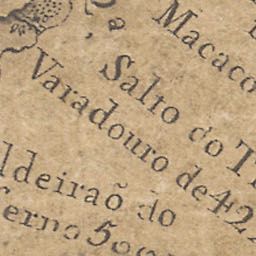 Macaco
Salto do
Varadouro de 422
ldeiraõ do
ferno 500